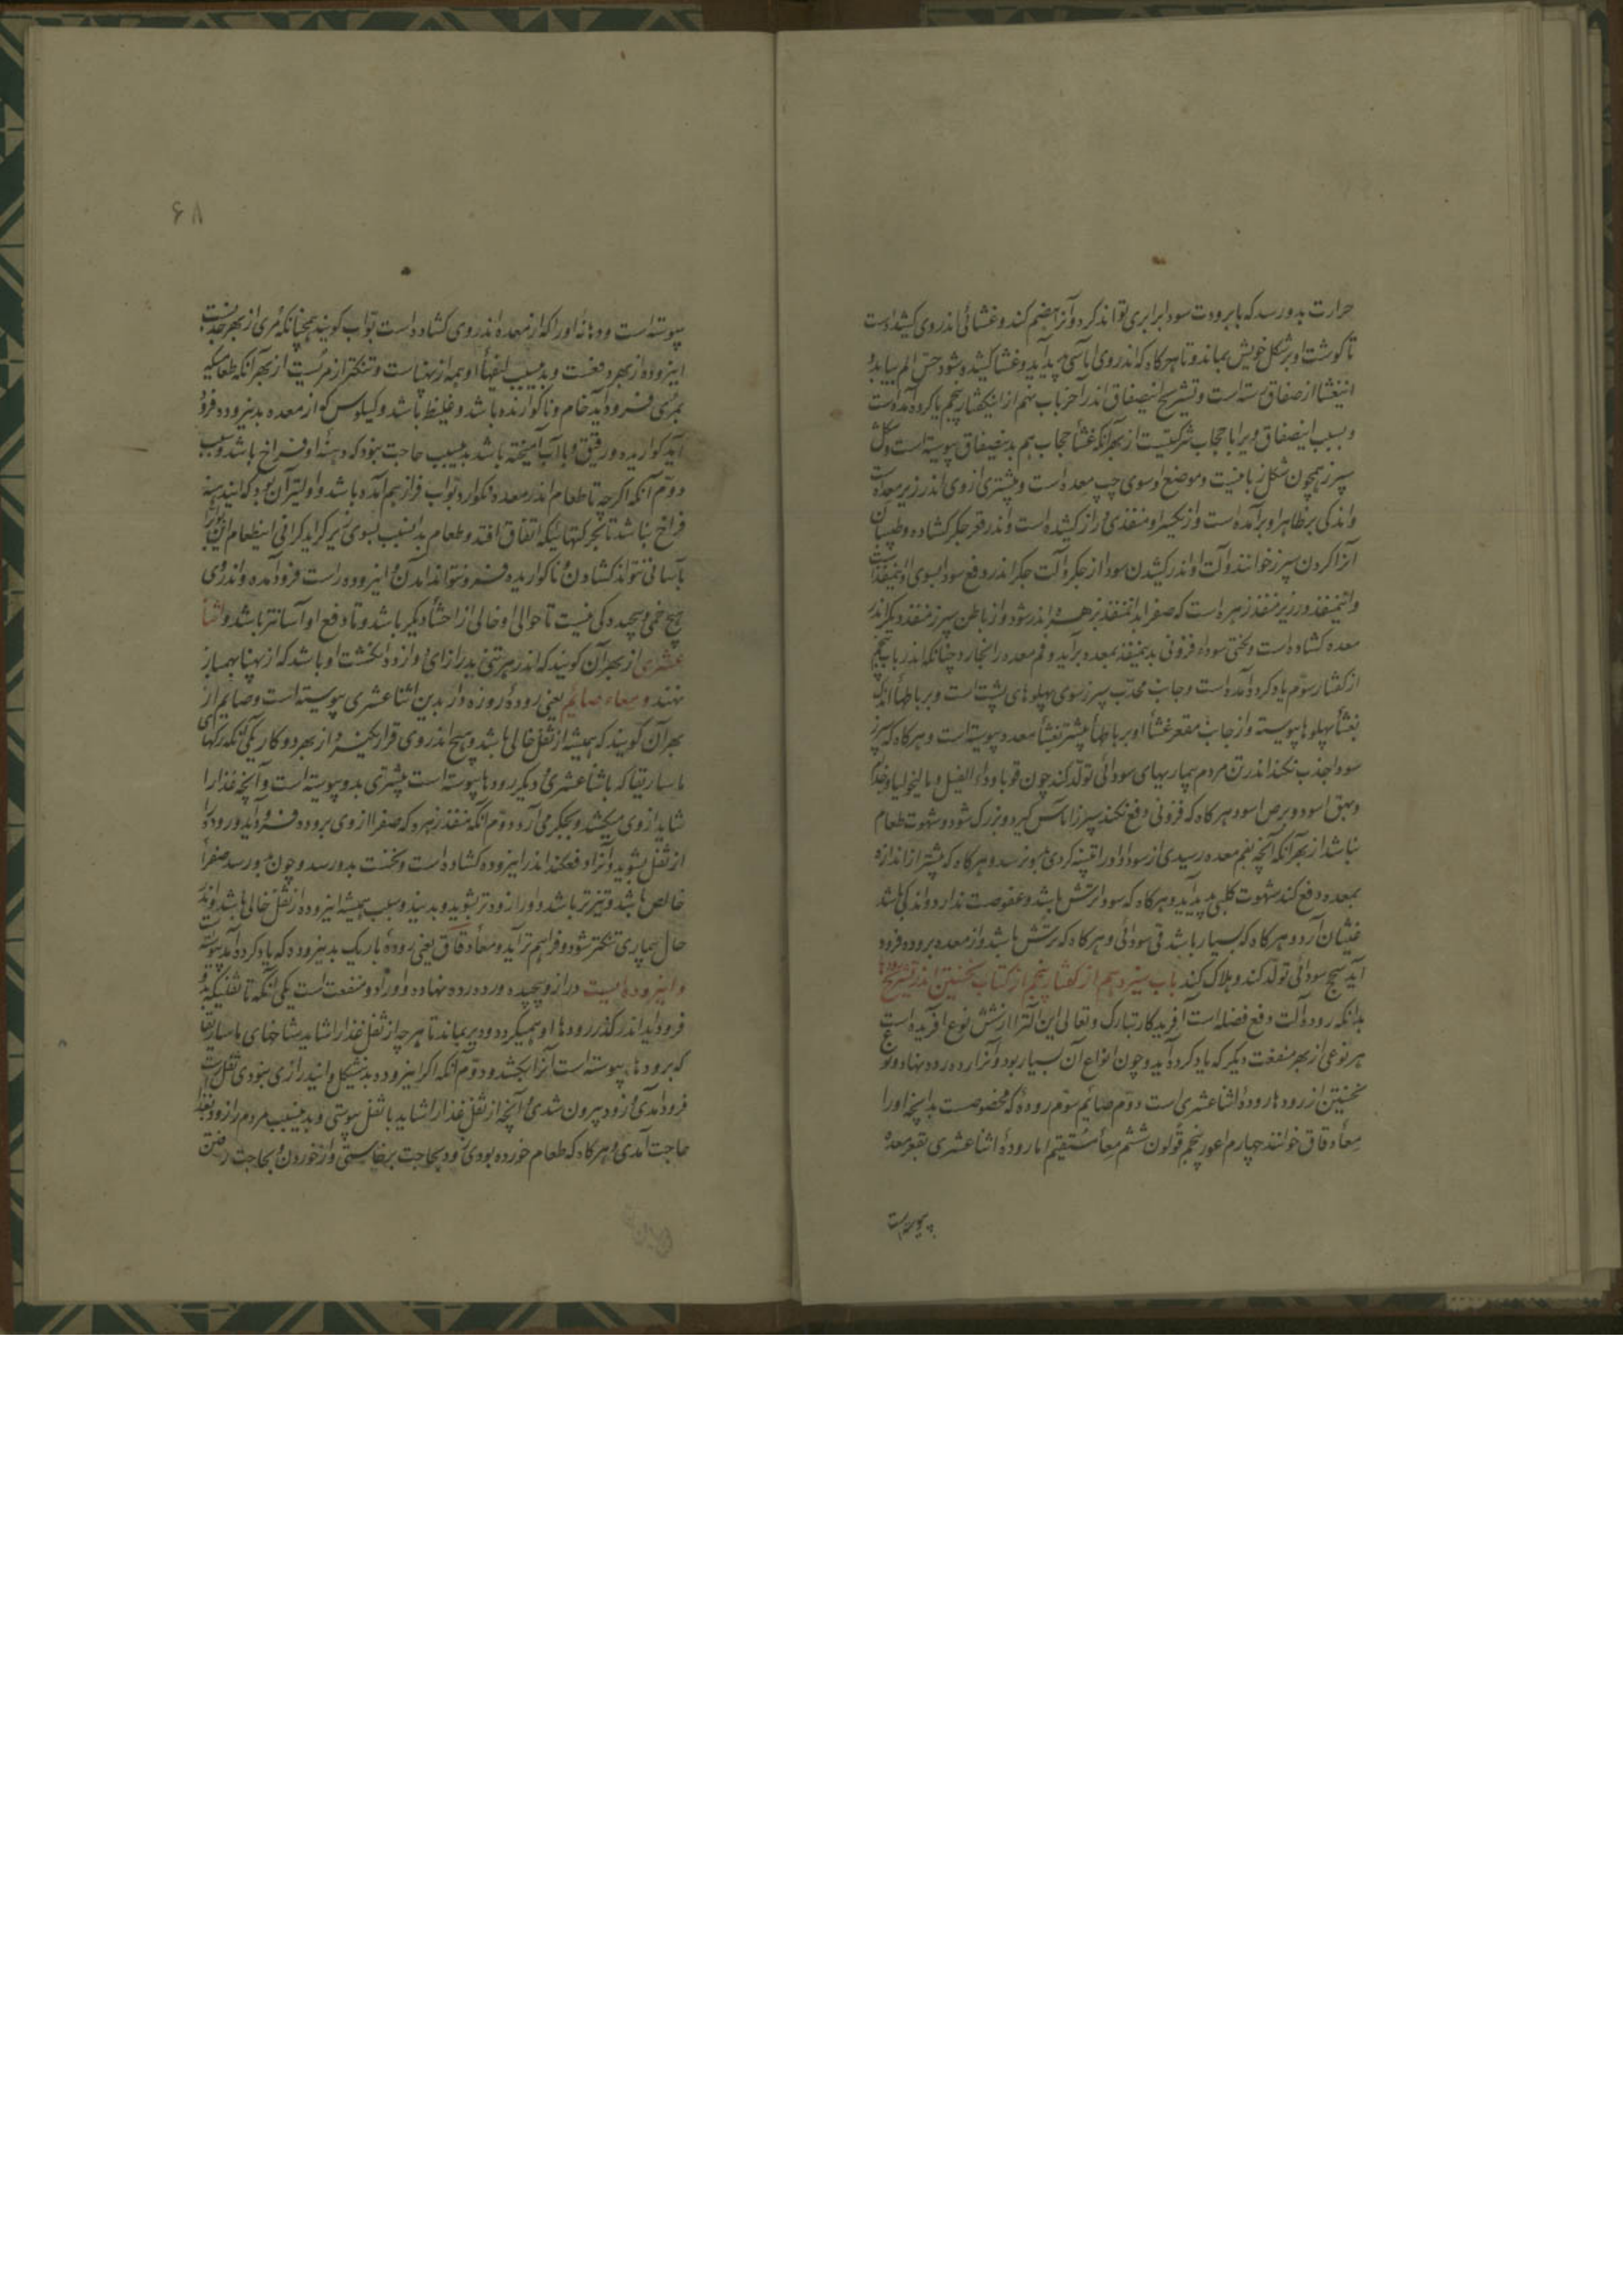 حرارت بدو رسد که با برودت سودا برابری تواند کرد و آنرا هضم کند و غشائی اندر وی کشیده است
تا گوشت او بر شکل خویش بماند و تا هرگاه که اندر وی اماسی پدید آید و غشا کشیده شود حس الم بیابد و
اینغشا از صفاق رسته است و تشریح اینصفاق اندر آخر باب نهم از اینگفتار پنجم یاد کرده آمده است
و بسبب اینصفاق ویرا با حجاب شرکتیست از بهر آنکه غشأ حجاب هم بدینصفاق پیوسته است و شکل
سپرز همچون شکل زبانیست و موضع او سوی چپ معده است و بیشتری از وی اندر زیر معده است
و اندکی بر ظاهر او برآمده است و از یکسر او منفذی دراز کشیده است و اندر قعر جگر گشاده و طبیبان
آنرا گردن سپرز خوانند و آلت او اندر کشیدن سودا از جگر و آلت جگر اندر دفع سودا بسوی او اینمنفذ است
و اینمنفذ در زیر منفذ زهره است که صفرا بدانمنفذ بزهره اندر شود و از باطن سپرز منفذ دیگر اندر
معده گشاده است و لختی سوداء فزونی بدینمنفذ بمعده برآید و فم معده را بخارد چنانکه اندر باب پنجم
از گفتار سوّم یاد کرده آمده است و جانب محدّب سپرز سوی پهلوهای پشت است و برباطهأ اندک
بغشأ پهلوها پیوسته و از جانب مقعر غشأ او برباطهأ بیشتر بغشأ معده پیوسته است و هرگاه که سپرز
سودا جذب نکند اندر تن مردم بیماریهای سودائی تولّد کند چون قوبا و داء الفیل و مالیخولیا و جذام
و بهق اسود و برص اسود و هرگاه که فزونی دفع نکند سپرز اماس گیرد و بزرگ شود و شهوت طعام
نباشد از بهر آنکه آنچه بفم معده رسیدی از سودا و او را تنبیه کردی نرسد و هرگاه که بیشتر از اندازه
بمعده دفع کند شهوت کلبی پدید آید و هرگاه که سودا ترش باشد و عفوصت ندارد و اندکی باشد
غثیان آرد و هرگاه که بسیار باشد قی سودائی و هرگاه که ترش باشد و از معده بروده فرود
آید سحج سودائی تولد کند و هلاک کند باب سیزدهم از گفتار پنجم از کتاب نخستین اندر تشریح رودها
بدانکه روده آلت دفع فضله است آفریدکار تبارک و تعالی این آلترا از شش نوع آفریده است
هر نوعی از بهر منفعت دیگر که یاد کرده آید و چون انواع آن بسیار بود و آنرا رده رده نهاد و تو
نخستین از رودها روده اثنا عشری است دوّم صایم سوّم روده که مخصوصست بدانچه او را
معأ دقاق خوانند چهارم اعور پنجم قولون ششم معأ مستقیم اما روده اثنا عشری بقعر معده
پیوسته است
۶۸
پیوسته است و دهانه او را که از معده اندر وی گشاده است بوّاب گویند همچنانکه مری از بهر جذبست
اینروده از بهر دفعست و بدینسبب لیفهأ او همه از پهناست و تنگتر از مریست از بهر آنکه طعامیکه
بمری فرود آید خام و ناگوارنده باشد و غلیظ باشد و کیلوس که از معده بدینروده فرود
آید گواریده و رقیق و با آب آمیخته باشد بدینسبب حاجت نبود که دهنه او فراخ باشد و سبب
دوّم آنکه اگرچه تا طعام اندر معده نگوارد بوّاب فراز هم آمده باشد و اولیتر آن بود که ایندهنه
فراخ نباشد تا بحرکتهائیکه اتفاق افتد و طعام بدانسبب بسوی زیر گراید گرانی اینطعام این بوابرا
بآسانی نتواند گشادن و ناگواریده فرو نتواند آمدن و اینروده راست فرود آمده و اندر وی
هیچ خمی و پیچیدگی نیست تا حوالی او خالی از احشأ دیگر باشد و تا دفع او آسانتر باشد و اثنا
عشری از بهر آن گویند که اندر هر تنی بدرازای او دوازده انگشت او باشد که از پهنا بهم باز
نهند و معاء صایم یعنی روده روزه دار بدین اثنا عشری پیوسته است و صایم از
بهر آن گویند که همیشه از ثفل خالی باشد و هیچ اندر وی قرار نگیرد از بهر دو کار یکی آنکه رگهای
ماساریقا که باثنا عشری و دیگر رودها پیوسته است بیشتری بدو پیوسته است و آنچه غذا را
شاید از وی میکشد و بجگر می آرد دوّم آنکه منفذ زهره که صفرا از وی بروده فرو آید و روده را
از ثفل بشوید و آنرا دفع کند اندر اینروده گشاده است و نخست بدو رسد و چون بدو رسد صفرأ
خالص باشد و تیزتر باشد و او را زودتر بشوید و بدین دو سبب همیشه اینروده از ثفل خالی باشد و اندر
حال بیماری تنگتر شود و فراهم تر آید و معأ دقاق یعنی روده باریک بدینروده که یاد کرده آمد پیوسته
و اینروده ایست دراز و پیچیده و رده رده نهاده و او را دو منفعت است یکی آنکه تا ثفلیکه بدو
فرود آید اندر گذر رودها او همیگردد و دیر بماند تا هرچه از ثفل غذا را شاید شاخهای ماساریقا
که برودها پیوسته است آنرا بکشد و دوّم آنکه اگر اینروده بدینشکل و ایندرازی نبودی ثفل راست
فرود آمدی و زود بیرون شدی و آنچه از ثفل غذا را شاید با ثفل بیوستی و بدینسبب مردم را زود بغذا
حاجت آمدی و هرگاه که طعام خورده بودی زود بحاجت برخاستی و از خوردن و بحاجت رفتن